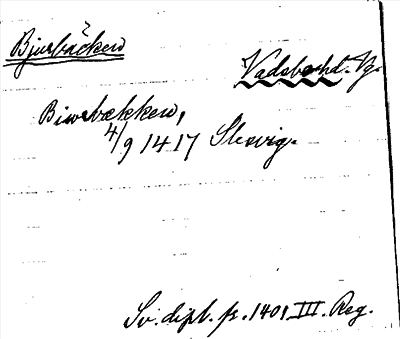 Bjursbäcken
Vadsbo hd. Vg.
Biursbækken,
4/9 1417 Slesvig.
Sv. dipl. fr. 1401 III. Reg.